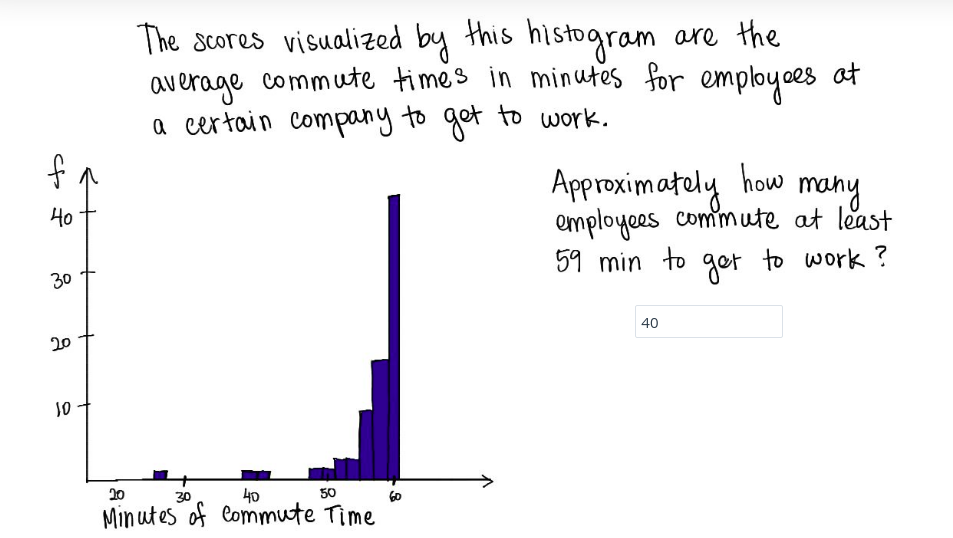 The scores visualized by this histogram are the
average commute times in minutes for employees at
a certain company to get to work.
f
40
30
20
10
20 30 40 50 60
Minutes of Commute Time
Approximately how many
employees commute at least
59 min to get to work?
40